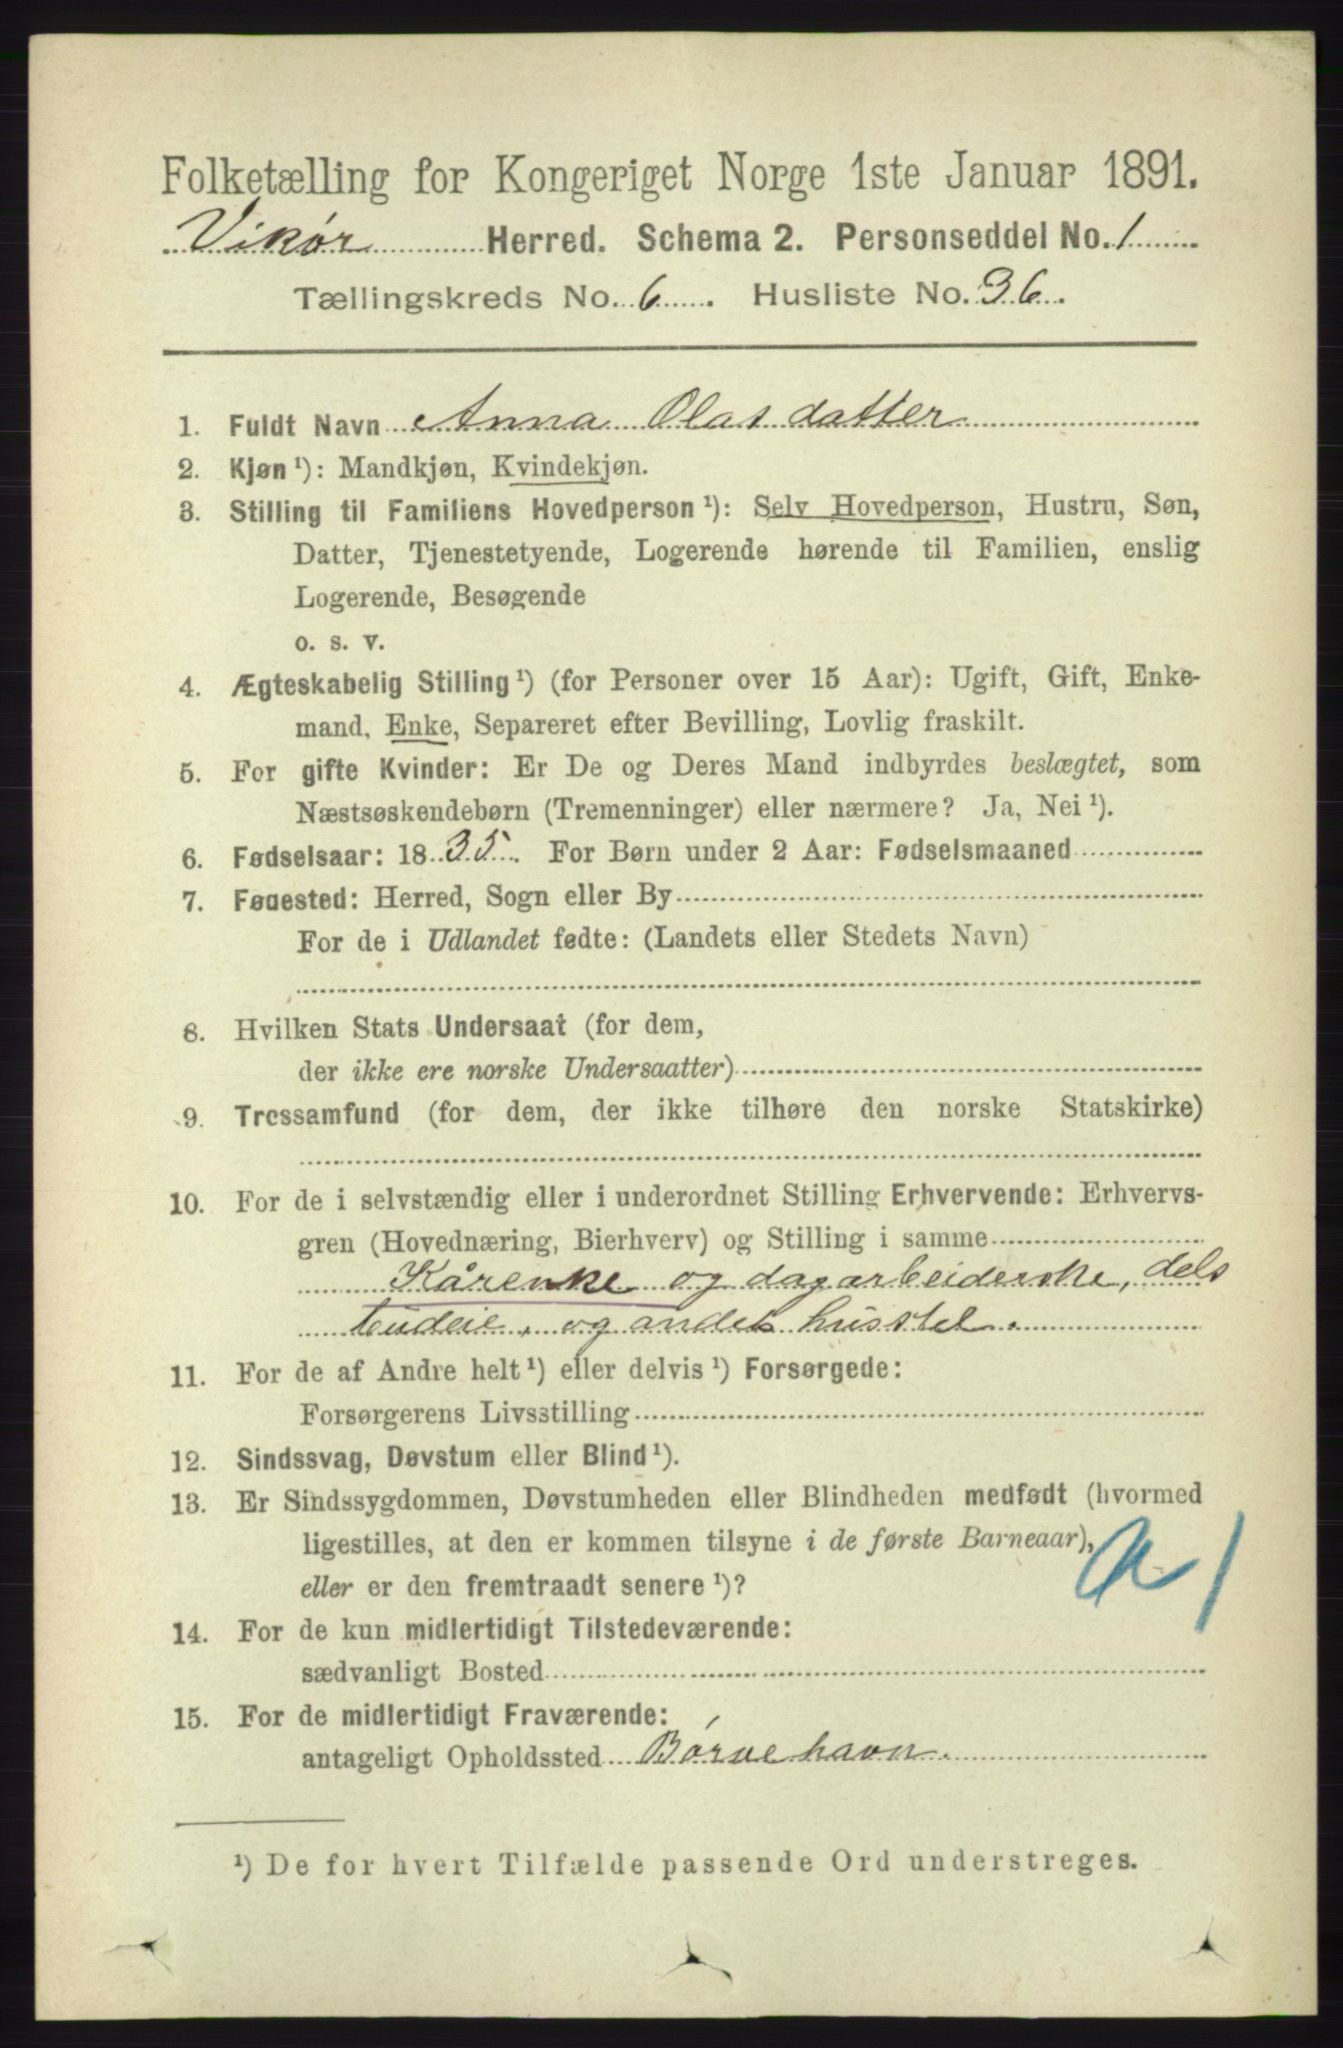 Folketælling for Kongeriget Norge 1ste Januar 1891.
Vikør Herred. Schema 2. Personseddel No. 1
Tællingskreds No. 6. Husliste No. 36.
1. Fuldt Navn Anna Olasdatter
2. Kjøn ¹): Mandkjøn, Kvindekjøn.
3. Stilling til Familiens Hovedperson ¹): Selv Hovedperson, Hustru, Søn,
Datter, Tjenestetyende, Logerende hørende til Familien, enslig
Logerende, Besøgende
o. s. v.
4. Ægteskabelig Stilling ¹) (for Personer over 15 Aar): Ugift, Gift, Enke-
mand, Enke, Separeret efter Bevilling, Lovlig fraskilt.
5. For gifte Kvinder: Er De og Deres Mand indbyrdes beslægtet, som
Næstsøskendebørn (Tremenninger) eller nærmere? Ja, Nei ¹).
6. Fødselsaar: 1835. For Børn under 2 Aar: Fødselsmaaned
7. Fødested: Herred, Sogn eller By
For de i Udlandet fødte: (Landets eller Stedets Navn)
8. Hvilken Stats Undersaat (for dem,
der ikke ere norske Undersaatter)
9. Trossamfund (for dem, der ikke tilhøre den norske Statskirke)
10. For de i selvstændig eller i underordnet Stilling Erhvervende: Erhvervs-
gren (Hovednæring, Bierhverv) og Stilling i samme
Kårenke og dagarbeiderske, dels
budeie, og andet husstel.
11. For de af Andre helt ¹) eller delvis ¹) Forsørgede:
Forsørgerens Livsstilling
12. Sindssvag, Døvstum eller Blind ¹).
13. Er Sindssygdommen, Døvstumheden eller Blindheden medfødt (hvormed
ligestilles, at den er kommen tilsyne i de første Barneaar),
eller er den fremtraadt senere ¹)?
a 1
14. For de kun midlertidigt Tilstedeværende:
sædvanligt Bosted
15. For de midlertidigt Fraværende:
antageligt Opholdssted Børvehavn.
¹) De for hvert Tilfælde passende Ord understreges.